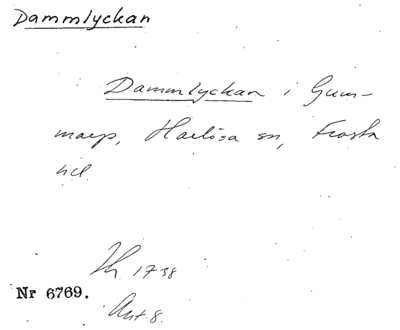 Dammlyckan
Dammlyckan i Gum-
marp, Harlösa sn, Frosta
hd.
Lh. 1738
Nr 6769.
Ant. 8.